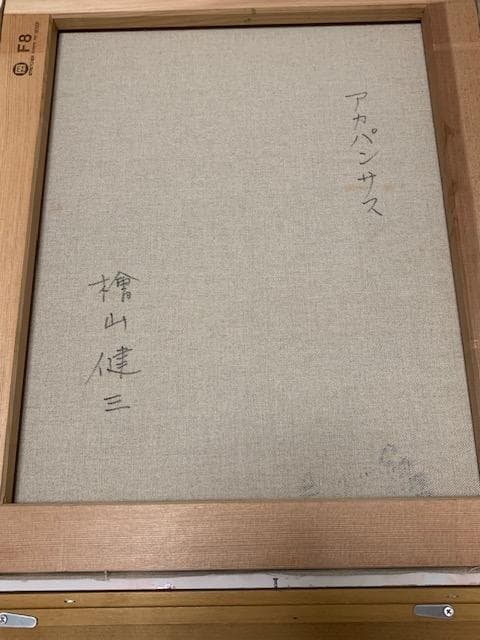 アカパンサス
檜山健三
F8